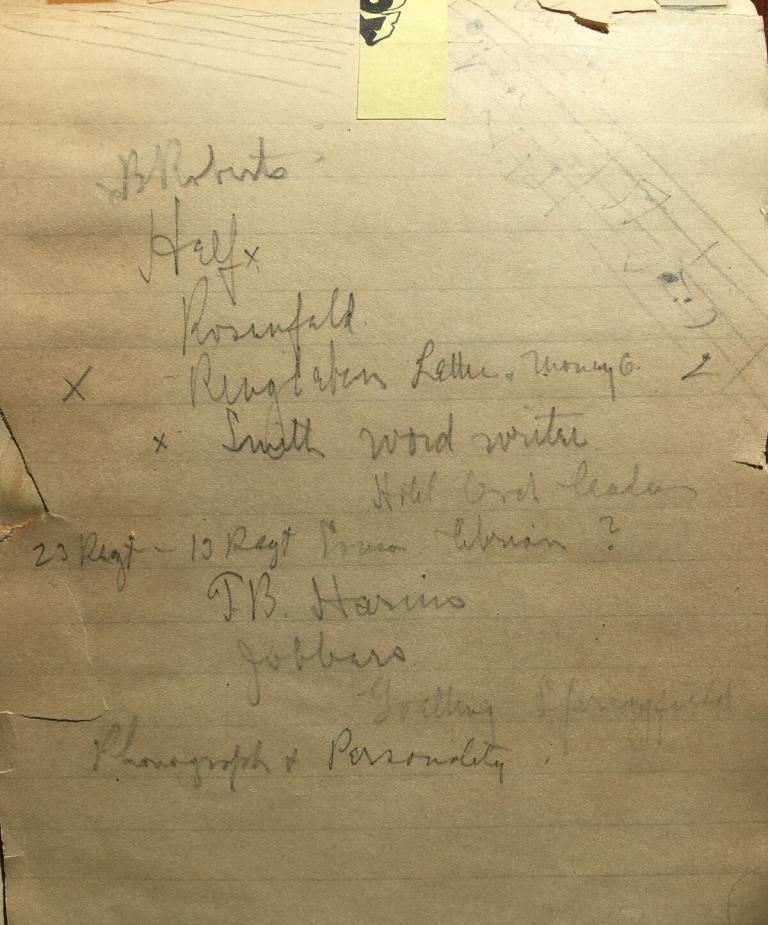 B Roberts
Half x
Rosenfeld.
x Ringleben Letter. Money
x Smith word writer
Hotel Orch leaders
23 Regt - 13 Regt Sousa ?
T.B. Harms
Jobbers
Goetting Springfield
Phonograph & Personality.